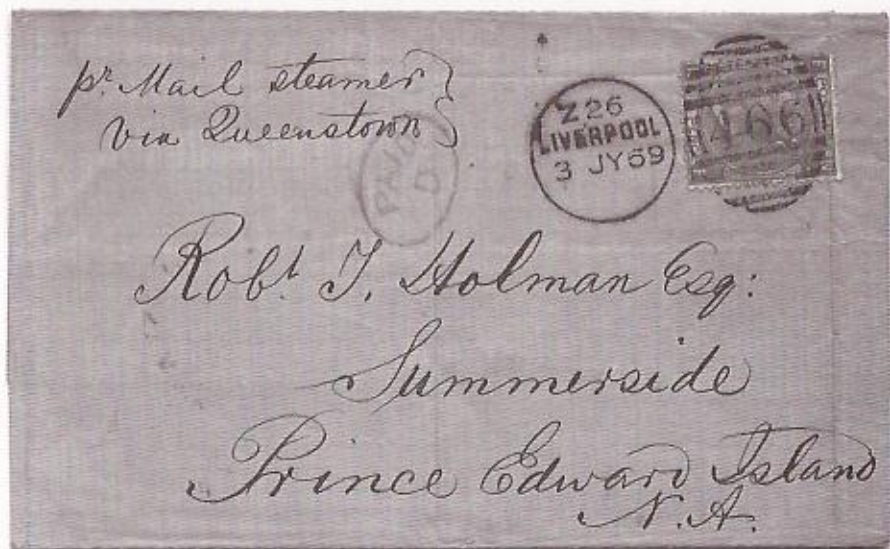 pr. Mail steamer
via Queenstown
PAID
Z 26
LIVERPOOL
3 JY 69
466
Robt. T. Holman Esq:
Summerside
Prince Edward Island
N. A.